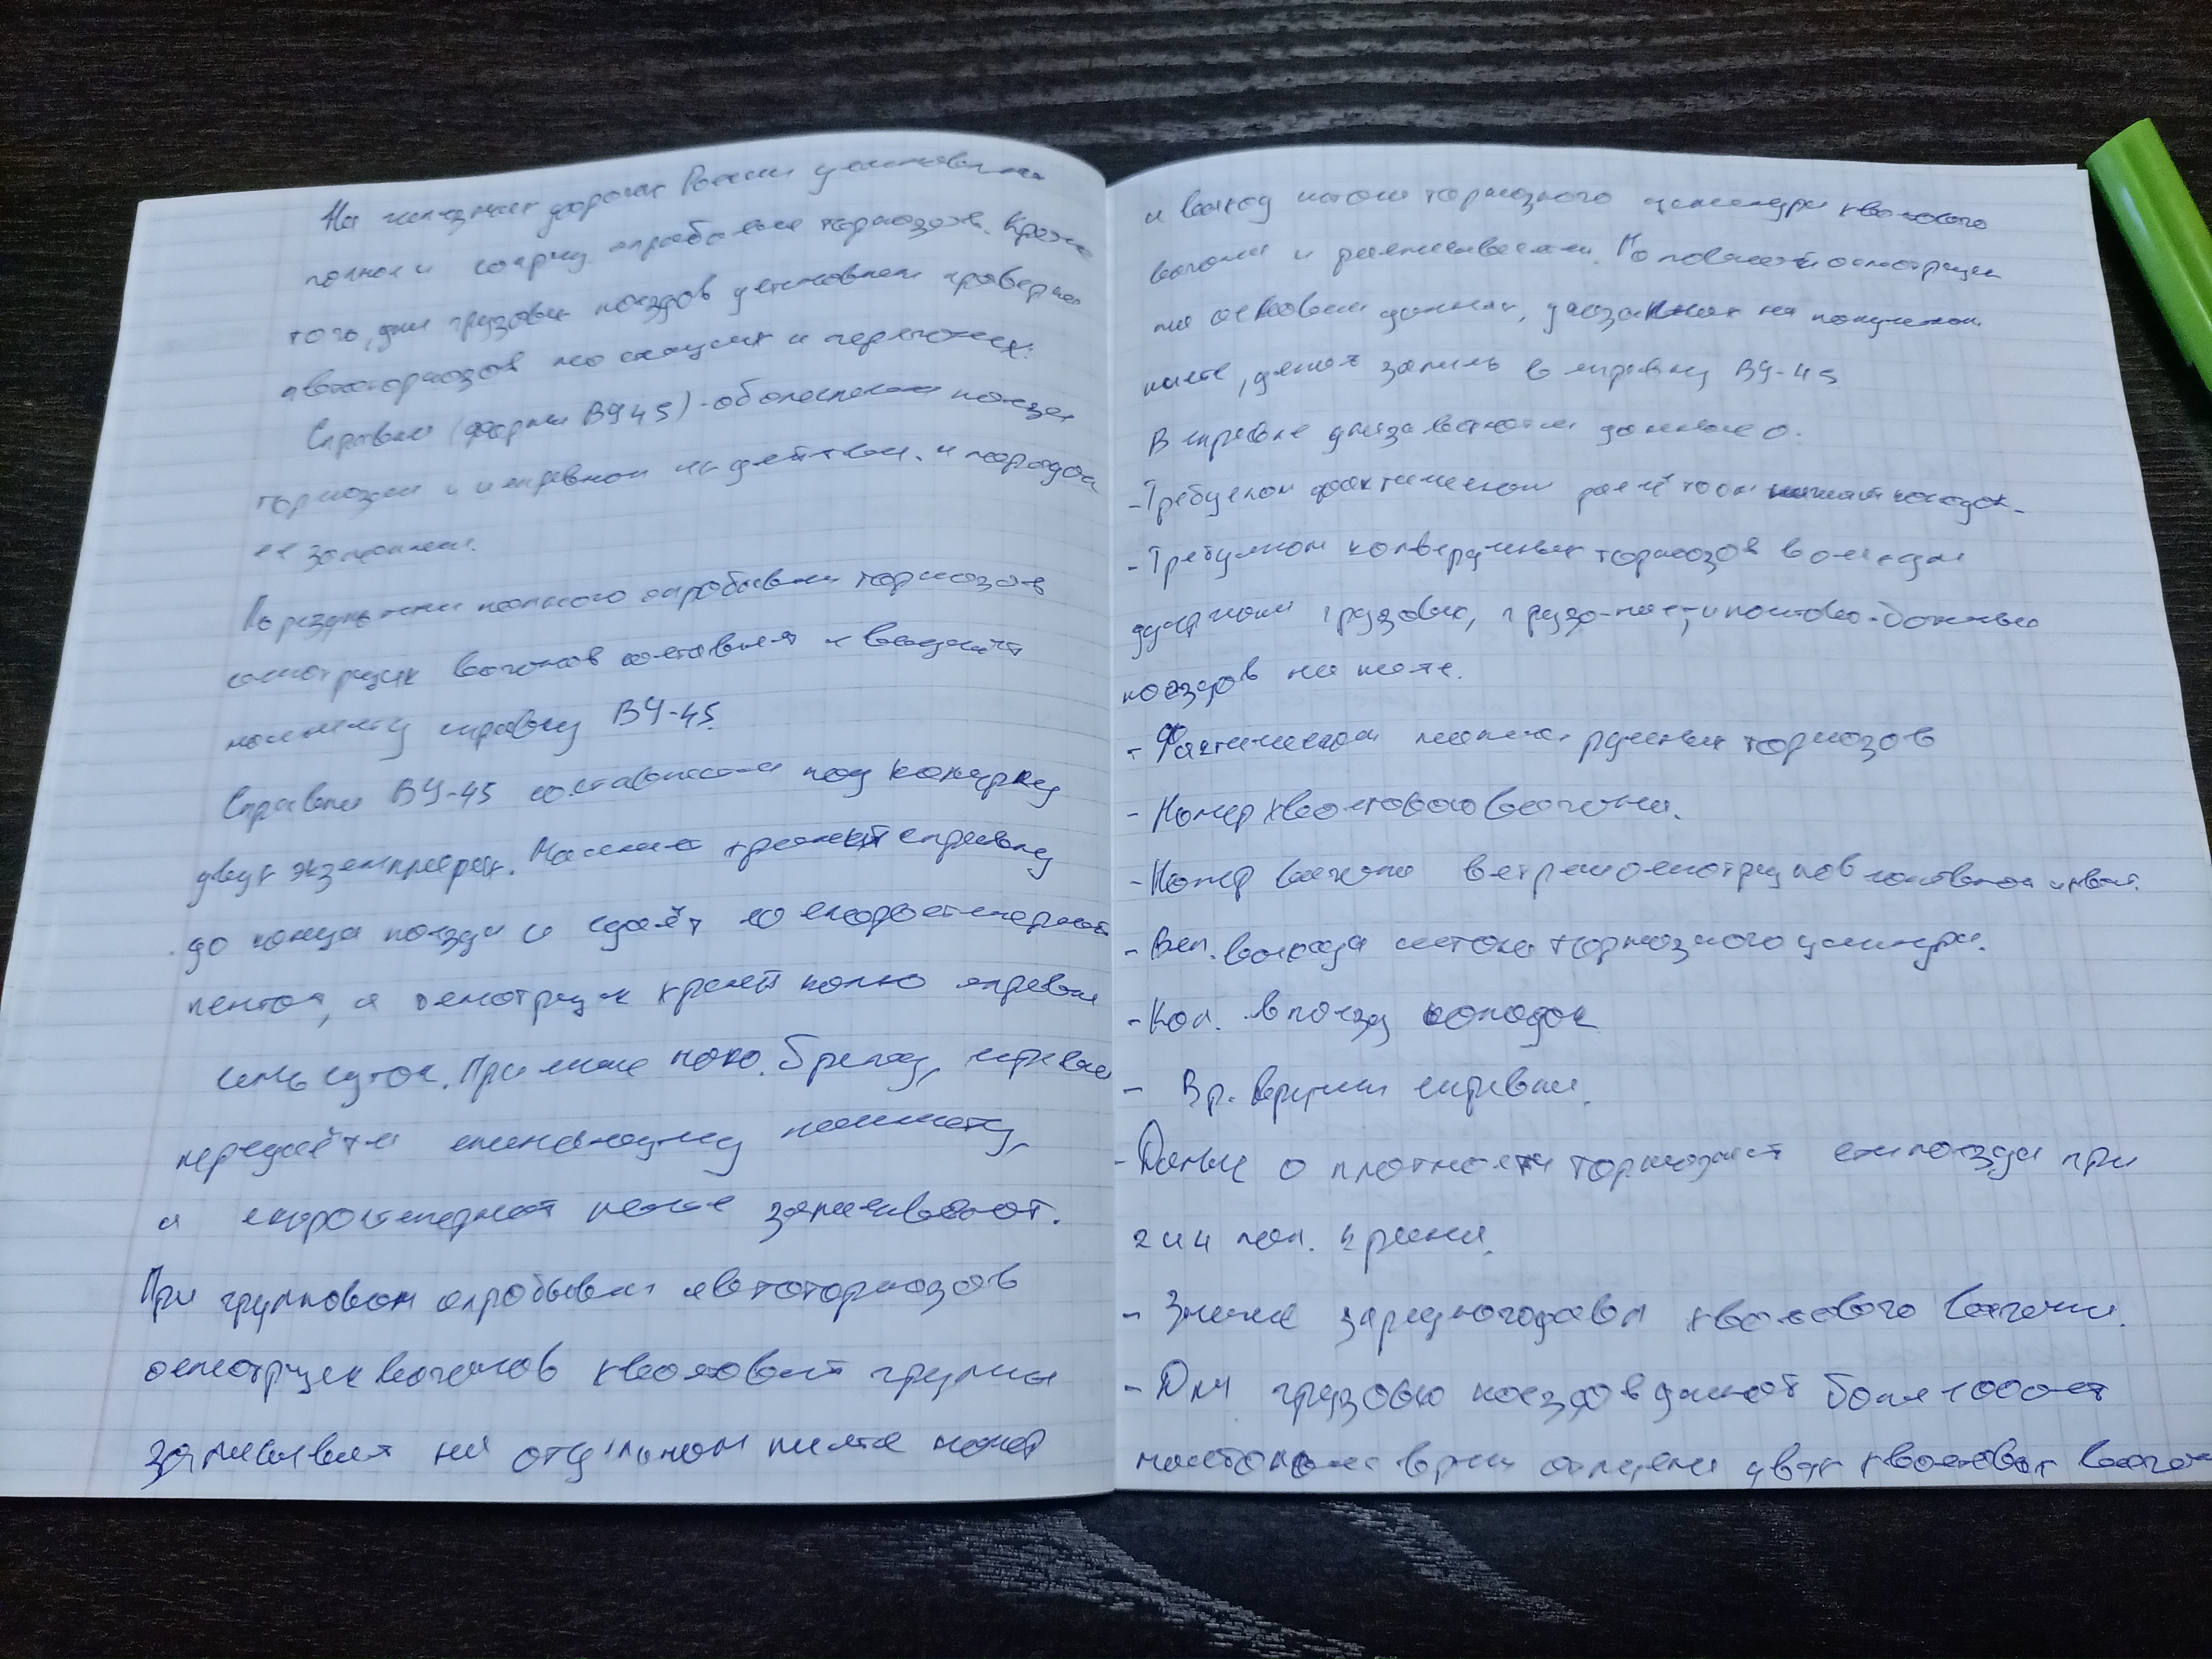 На железных дорогах России установлена
полное и сокращ опробование тормозов. Кроме
того, для грузовых поездов установлен проверка
автотормозов на станциях и перегонах.
Справка (форма ВУ45) - обеспечения поезда
тормозам и исправном их действии. и порядок
ее заполнен.
По результатам полного опробывания тормозов
осмотрщик вагонов составляет и вводит
машинисту справку ВУ-45.
Справка ВУ-45 составляется под копирку
двух экземплярах. Машинист хранит справку
до конца поезда и сдаёт со скоростемерной
лентой, а осмотрщик хранит копию справки
семь суток. При смене локо. бригад, справка
передаётся сменяющему машинисту,
а скоростемерной ленте записывают.
При групповом опробывании автотормозов
осмотрщик вагонов хвостовой группы
записывает на отдельном листе номер
и выход штока тормозного цилиндра хвостового
вагона и расписывается. Головной осмотрщик
на основан данных, указанных на полученом
листе, делает запись в справку ВУ-45
В справке указываются данные о.
- Требуемом фактическом расчётном колодок
- Требуемом ручных тормозов в осях для
грузовых, грузо-пас, и почтово-багажных
поездов на
- Фактическом ручных тормозов
- Номер хвостового вагона.
- Номер вагона встречи осмотрщиков головной и хвост.
- Вел. выхода штока тормозного цилиндра.
- Кол. в поезду колодок
- Вр. вручения справки.
- Данные о плотности тормозной сети поезда при
2 и 4 пол. крана.
- Значение зарядного давл хвостового вагона.
- Для грузовых поездов длиной более
время отпуска двух хвостовых вагон